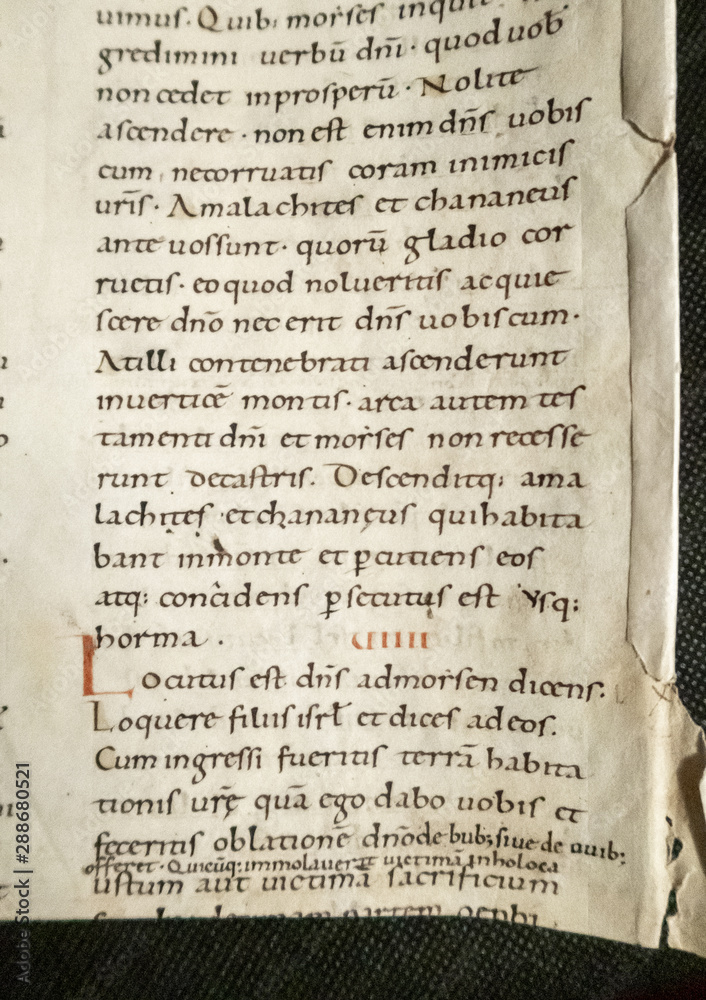 uimus. Quib; moyses inquit
gredimini uerbū dn̄i · quod uob
non cedet inprosperū · Nolite
ascendere · non est enim dn̄s uobis
cum, necorruatis coram inimicis
ur̄is · Amalachites et chananeus
ante uos sunt · quorū gladio cor
ruetis · eo quod nolueritis acquie
scere dn̄o nec erit dn̄s uobiscum ·
At illi contenebrati ascenderunt
in uerticē montis · arca autem tes
tamenti dn̄i et moyses non recesse
runt decastris. Descenditq; ama
lachites · et chananeus qui habita
bant in monte et ꝑcutiens eos
atq; concidens ꝑsecutus est usq;
horma .
Locutus est dn̄s ad moysen dicens.
Loquere filiis isrł et dices ad eos.
Cum ingressi fueritis terrā habita
tionis ur̄ę quā ego dabo uobis et
feceritis oblationē dn̄o de bub; siue de ouib;
offeret · Quicūq; immolauerit uictimā In holoca
ustum aut uictimā sacrificium